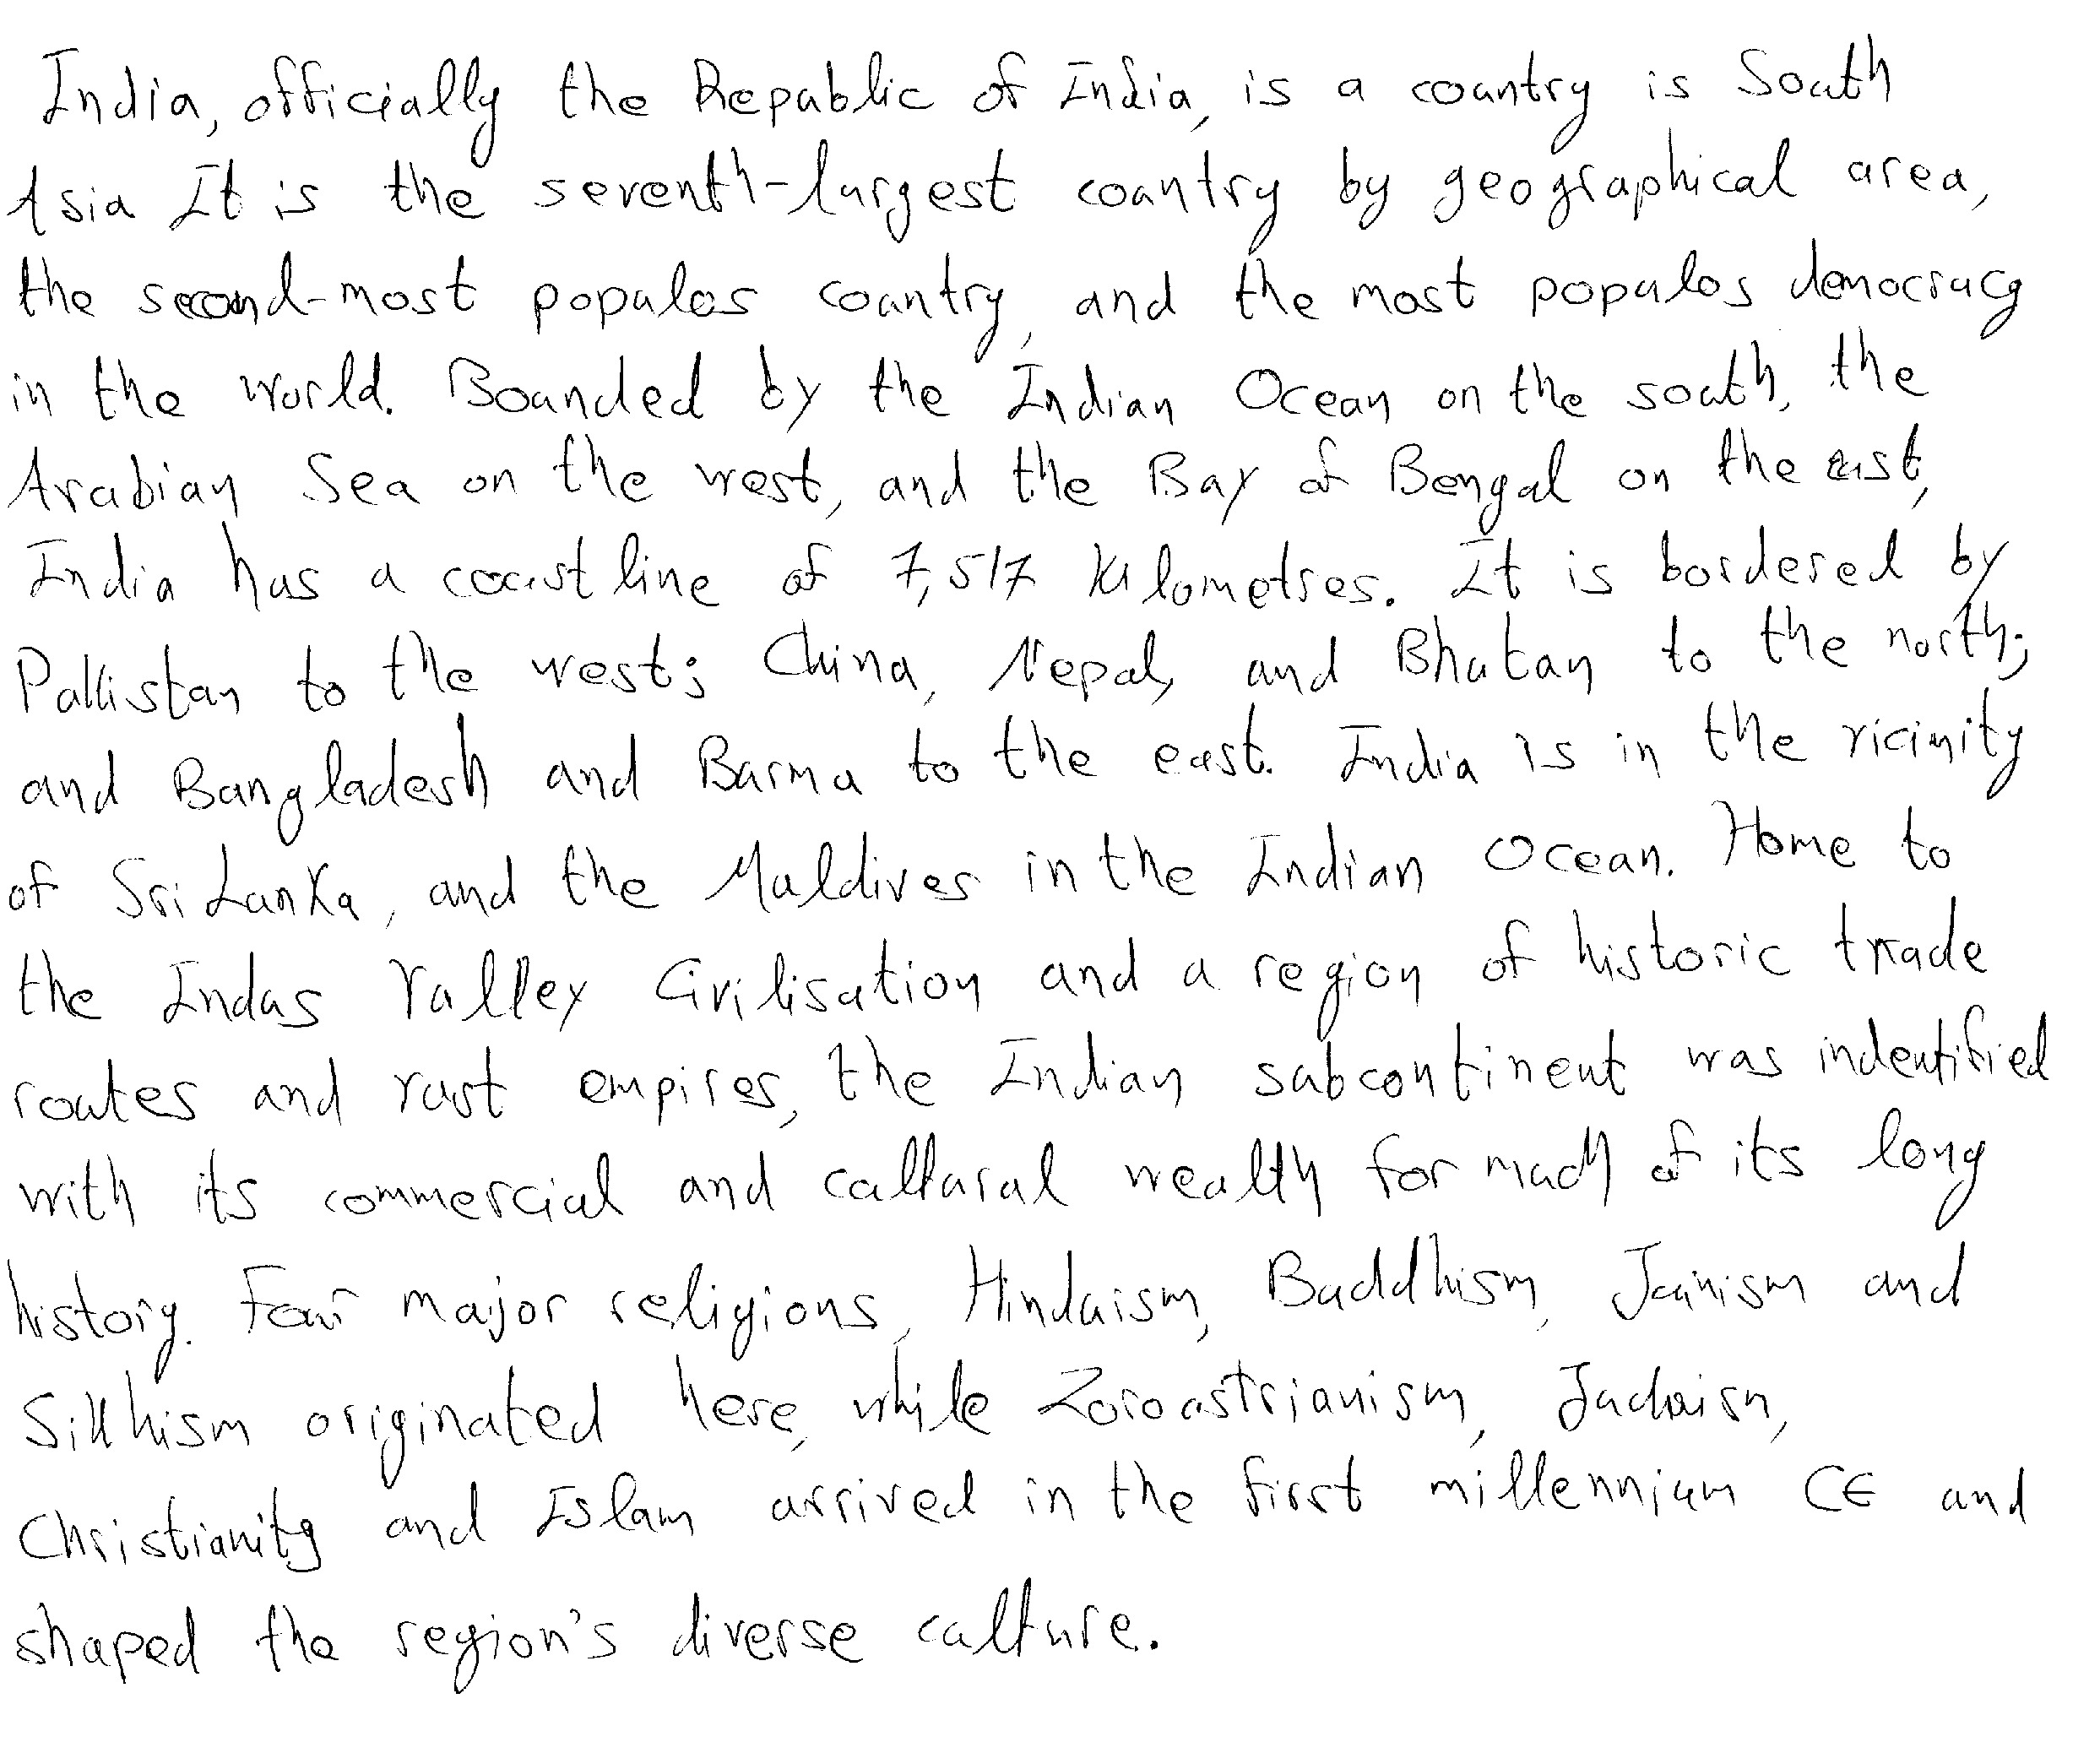 India, officially the Republic of India, is a country is South
Asia It is the seventh-largest country by geographical area,
the second-most populos country, and the most populos democracy
in the world. Bounded by the Indian Ocean on the south, the
Arabian Sea on the west, and the Bay of Bengal on the east,
India has a coastline of 7,517 kilometres. It is bordered by
Pakistan to the west; China, Nepal, and Bhutan to the north;
and Bangladesh and Burma to the east. India is in the vicinity
of Sri Lanka, and the Maldives in the Indian Ocean. Home to
the Indus Valley Civilisation and a region of historic trade
routes and vast empires, the Indian subcontinent was indentified
with its commercial and cultural wealth for much of its long
history. Four major religions, Hinduism, Buddhism, Jainism and
Sikhism originated here, while Zoroastrianism, Judaism,
Christianity and Islam arrived in the first millennium CE and
shaped the region's diverse culture.